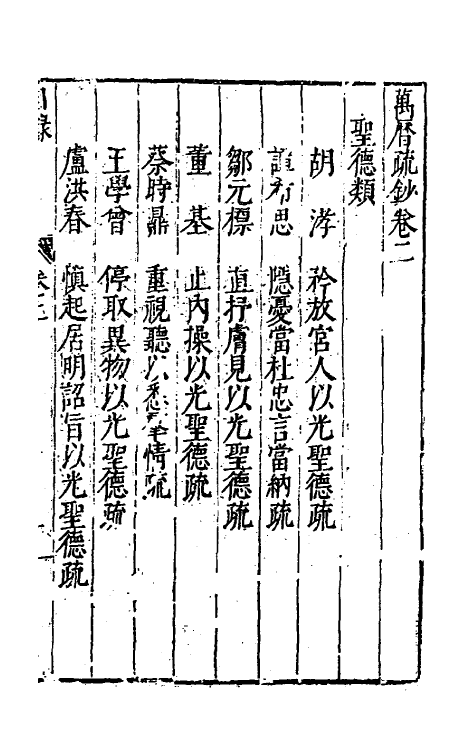 萬曆疏鈔卷二
聖德類
胡涍 矜放宮人以光聖德疏
譚希思 隱憂當杜忠言當納疏
鄒元標 直抒膚見以光聖德疏
董基 止內操以光聖德疏
蔡時鼎 重視聽以悉情疏
王學曾 停取異物以光聖德疏
盧洪春 慎起居明詔旨以光聖德疏
目錄 卷二